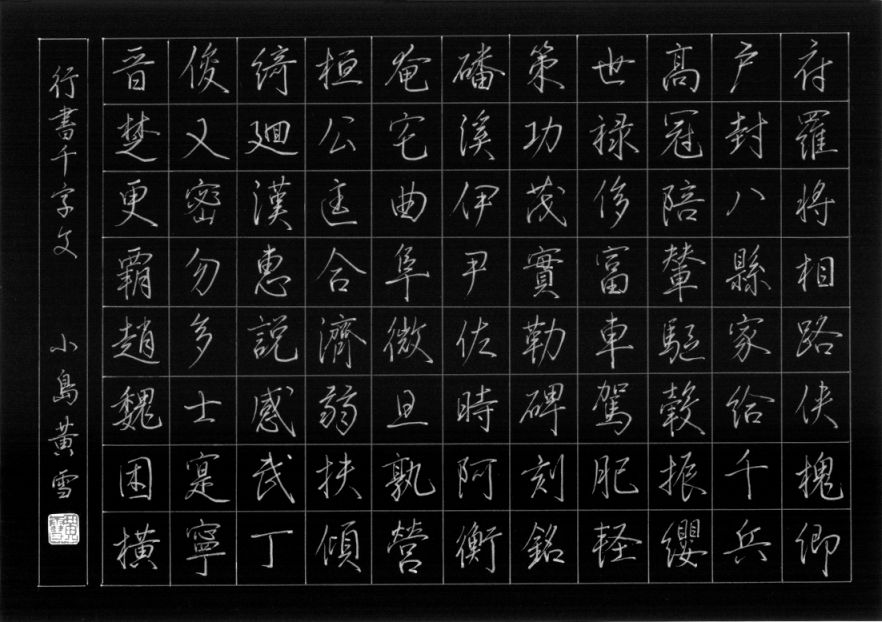 府羅将相路侠槐卿
戸封八縣家給千兵
高冠陪輦驅轂振纓
世禄侈富車駕肥軽
策功茂實勒碑刻銘
磻溪伊尹佐時阿衡
奄宅曲阜微旦孰營
桓公匡合濟弱扶傾
綺廻漢惠説感武丁
俊乂密勿多士寔寧
晋楚更覇趙魏困横
行書千字文 小島黄雪
黄雪